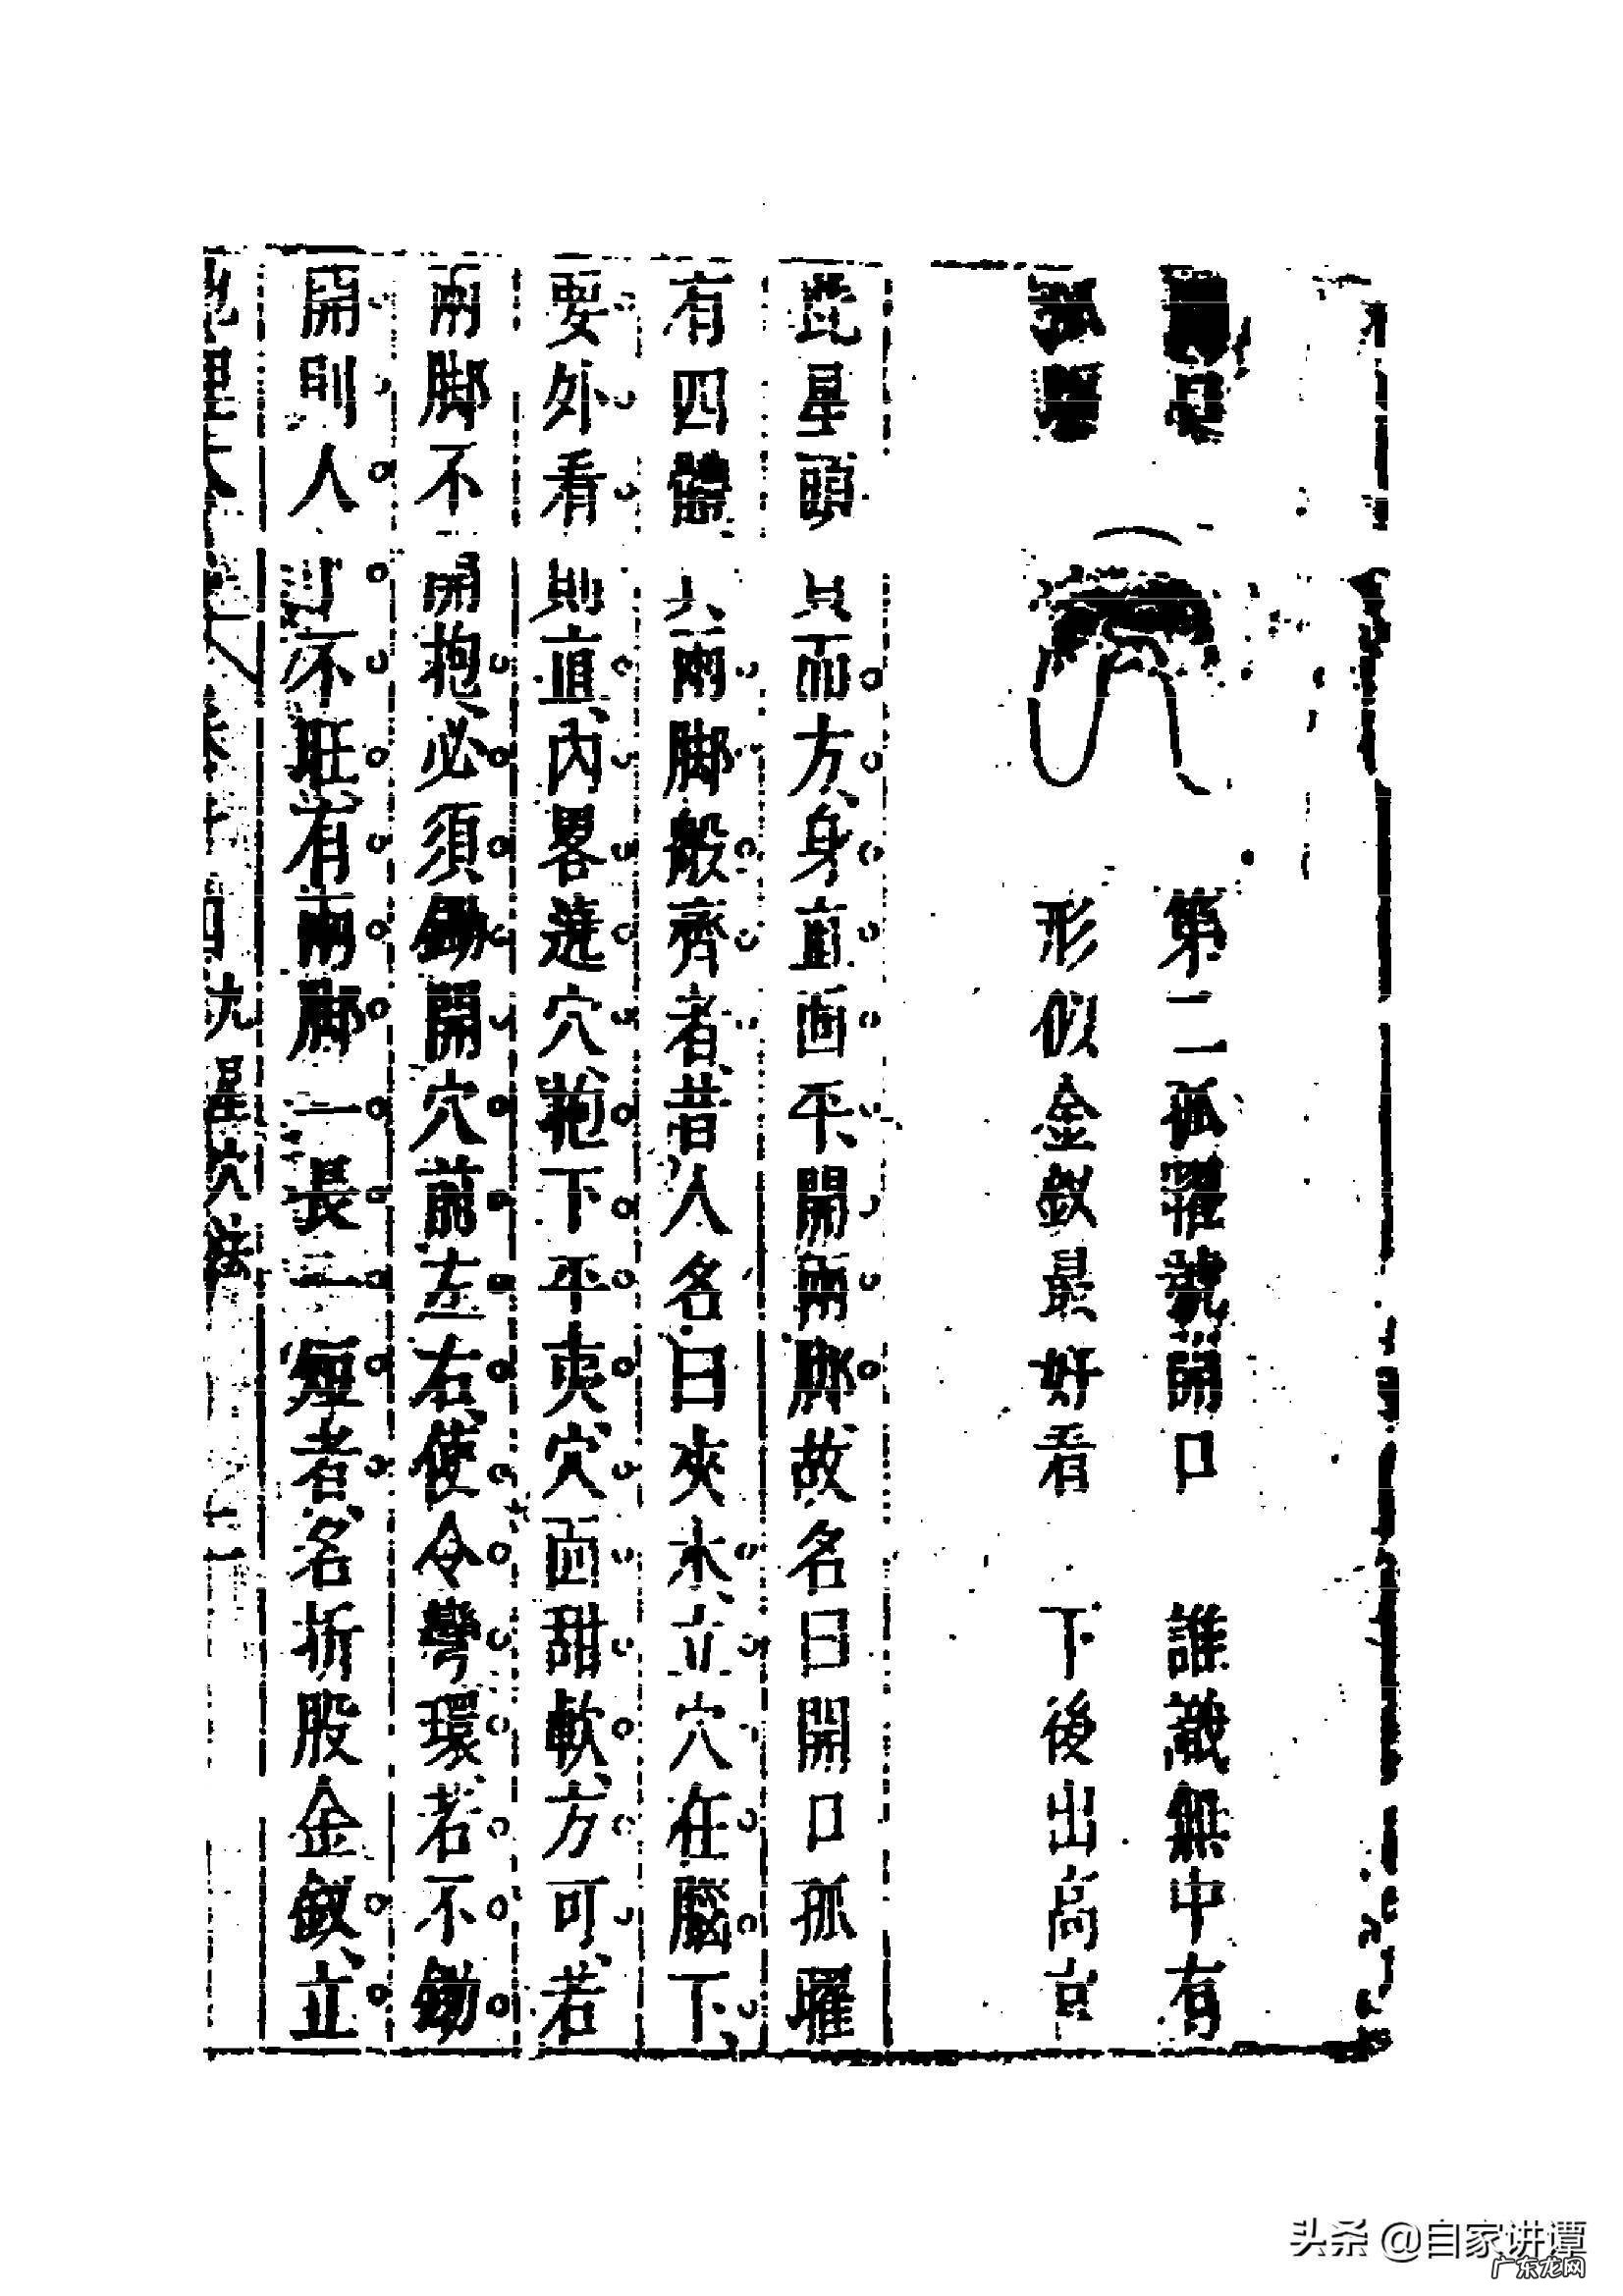 開口
孤曜
第二孤曜號開口 誰識無中有
形似金釵最好看 下後出高官
此星頭員而方、身直面平、開兩脚、故名曰開口孤曜
有四體、其兩脚般齊者、昔人名曰夾木、立穴在腦下、
要外看則直、內畧遶穴、苑下平夷、穴面甜軟、方可、若
兩脚不開抱、必須鋤開穴前左右、使令彎環、若不鋤
開、則人丁不旺、有兩脚一長一短者、名折股金釵、立
地理大 卷十四 九星穴法 二
头条 @自家讲谭
广东龙网